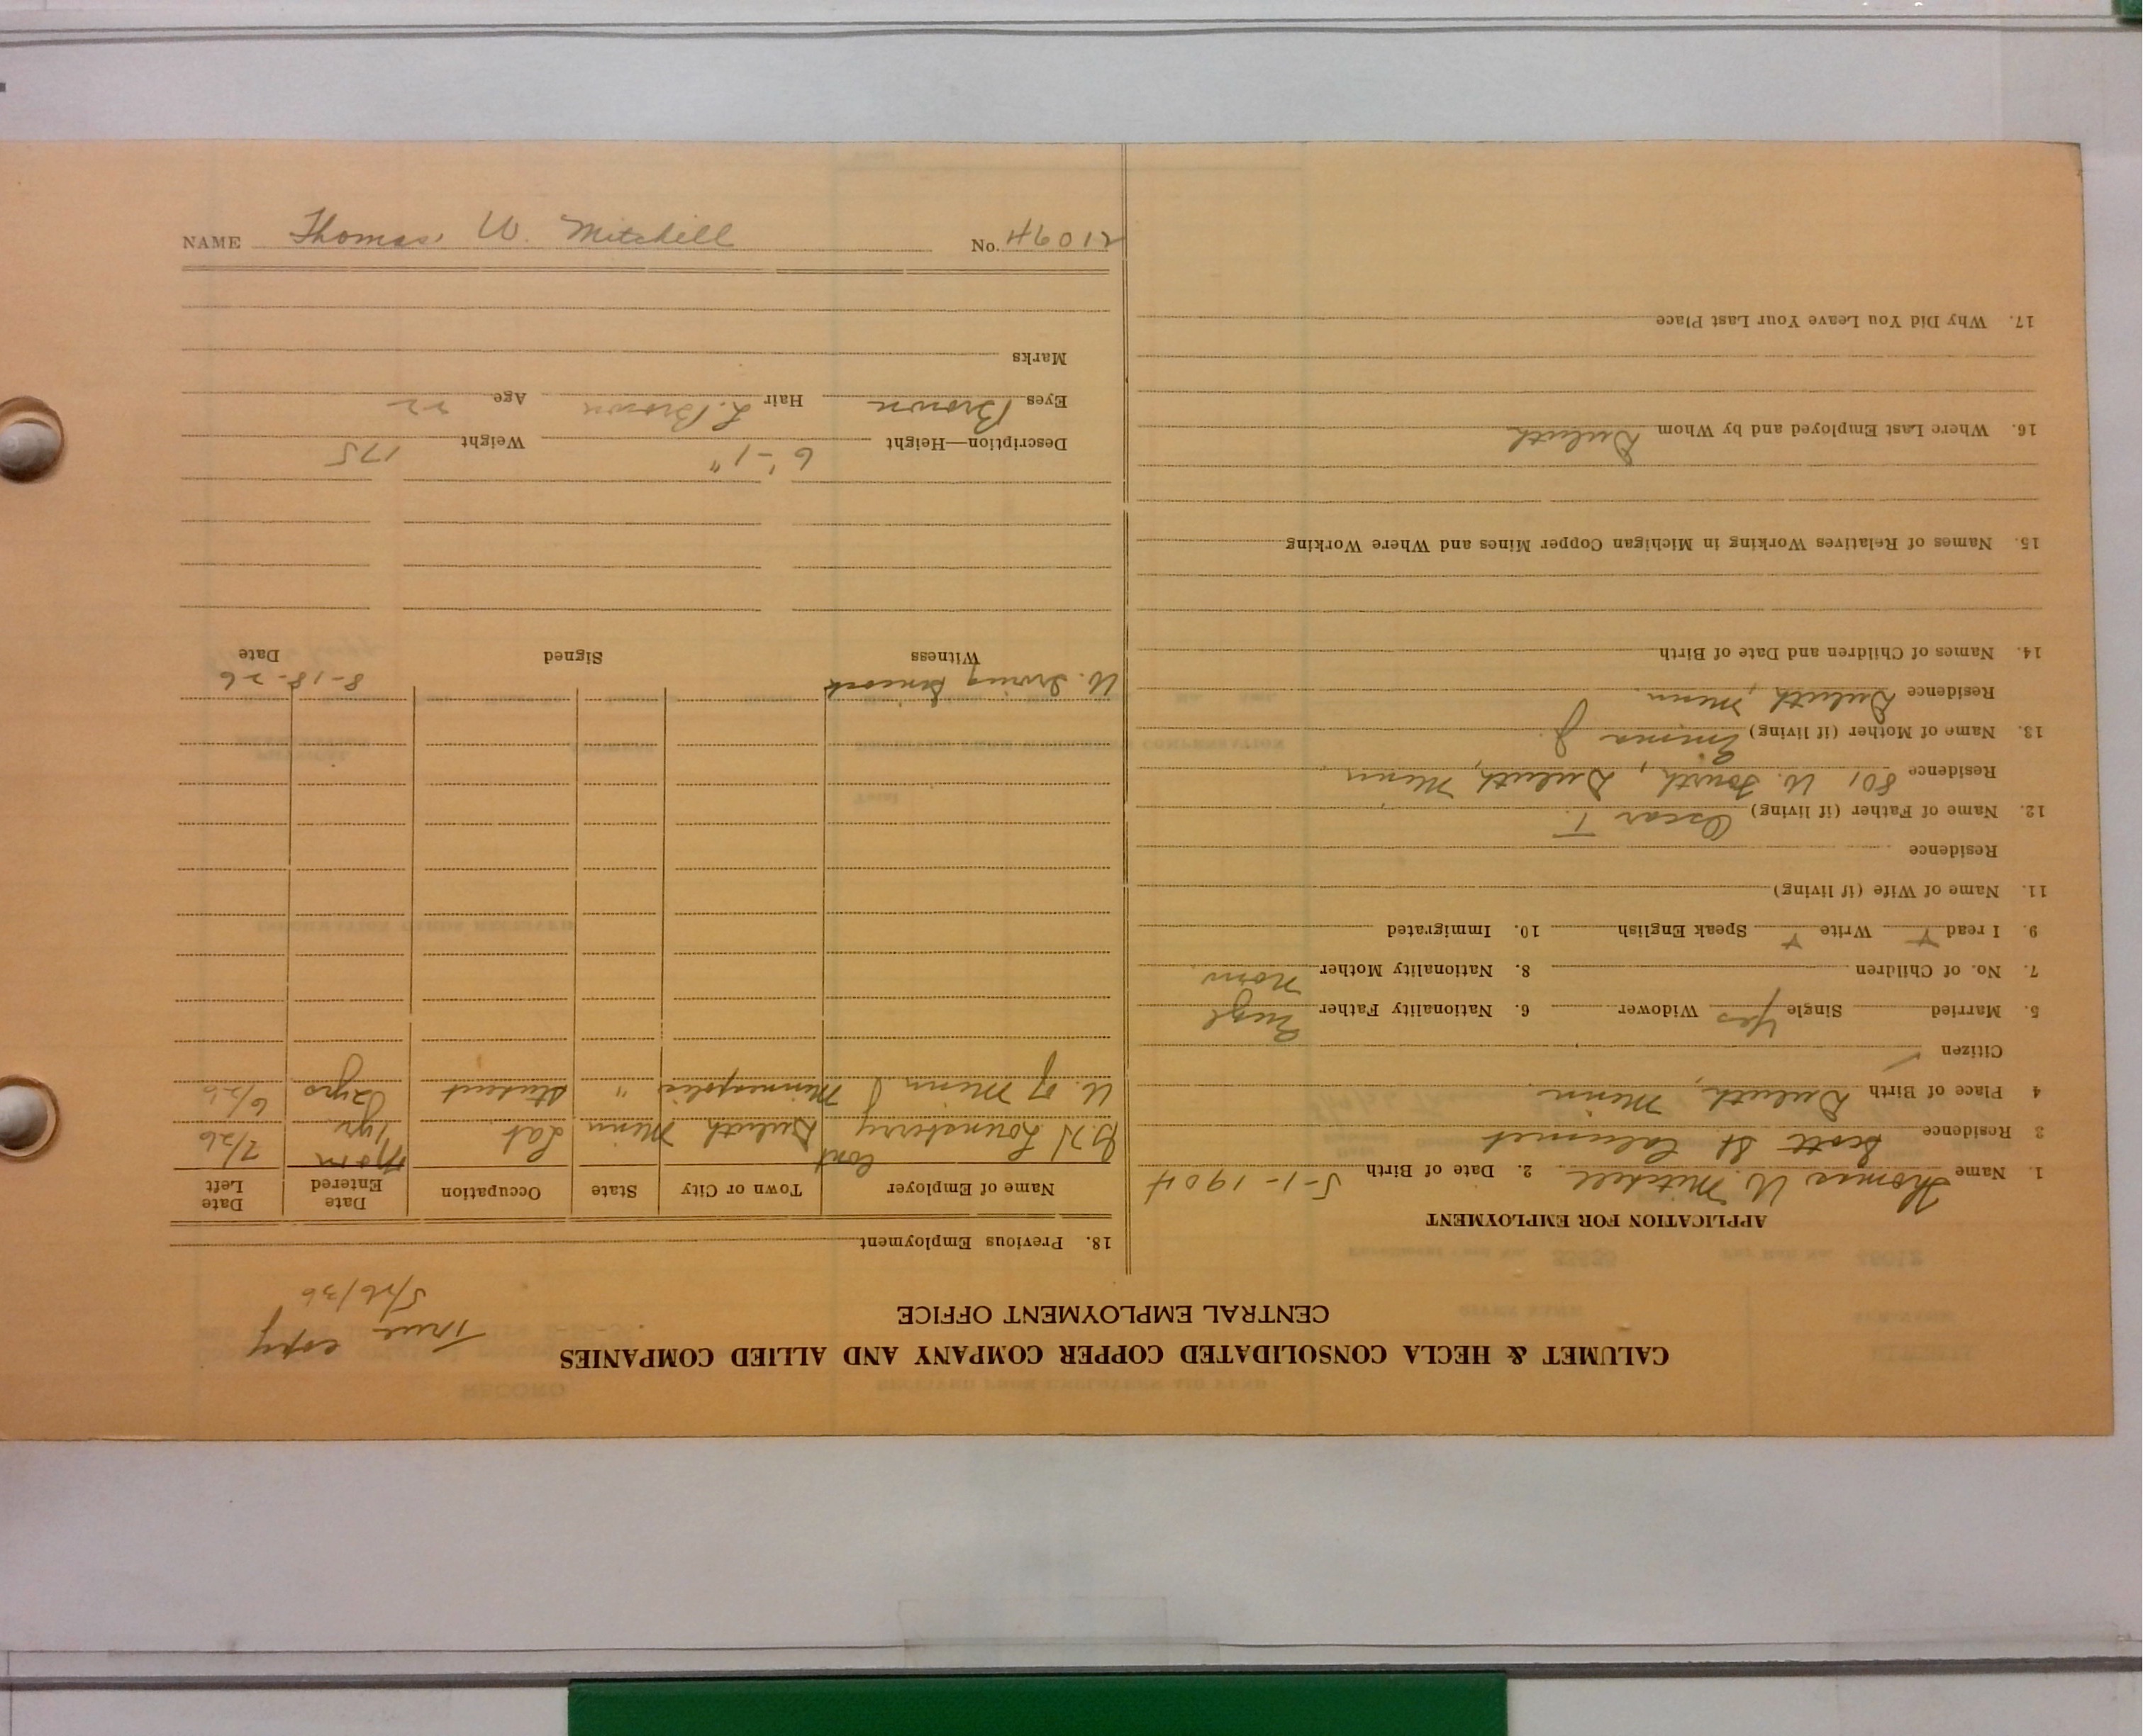 CALUMET & HECLA CONSOLIDATED COPPER COMPANY AND ALLIED COMPANIES
CENTRAL EMPLOYMENT OFFICE
True copy
5/26/36
APPLICATION FOR EMPLOYMENT
1. Name Thomas W. Mitchell 2. Date of Birth 5-1-1904
3 Residence Scott St Calumet
4 Place of Birth Duluth, Minn
Citizen ✓
5. Married Single Yes Widower 6. Nationality Father Engl
7. No. of Children 8. Nationality Mother Norw
9. I read Y Write Y Speak English 10. Immigrated
11. Name of Wife (if living)
Residence
12. Name of Father (if living) Oscar T.
Residence 801 W. Fourth, Duluth, Minn
13. Name of Mother (if living) Emma J
Residence Duluth, Minn.
14. Names of Children and Date of Birth
15. Names of Relatives Working in Michigan Copper Mines and Where Working
16. Where Last Employed and by Whom Duluth
17. Why Did You Leave Your Last Place
18. Previous Employment
Name of Employer Town or City State Occupation Date Entered Date Left
Lounsberry Cont Duluth Minn Lab 1 yr 7/26
U. of Minn Minneapolis " Student 2 yrs 6/26
W. Irving 8-18-26
Witness Signed Date
Description—Height 6'-1" Weight 175
Eyes Brown Hair L. Brown Age 22
Marks
NAME Thomas W. Mitchell No. 46012